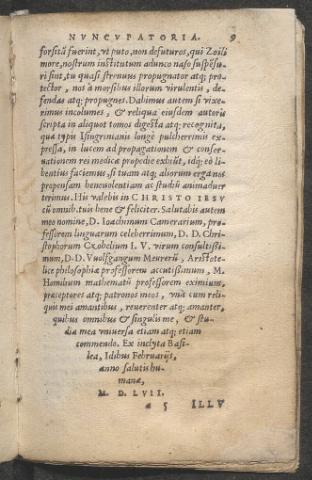 NVNCVPATORIA. 9
forsitã fuerint, vt puto, non defuturos, qui Zoili
more, nostrum institutum adunco naso suspẽsu-
ri sint, tu quasi strenuus propugnator atq; pro-
tector, nos à morsibus illorum virulentis, de-
fendas atq; propugnes. Dabimus autem si vixe-
rimus incolumes, & reliqua eiusdem autoris
scripta in aliquot tomos digesta atq; recognita,
quæ typis Isingrinianis longè pulcherrimis ex-
pressa, in lucem ad propagationem & conser-
uationem rei medicæ propedie exhibũt, idq; eò li-
bentius faciemus, si tuam atq; aliorum erga nos
propensam beneuolentiam ac studiũ animaduer
terimus. His valebis in CHRISTO IESV
cũ omnib. tuis bene & feliciter. Salutabis autem
meo nomine, D. Ioachinum Camerarium, pro-
fessorem linguarum celeberrimum, D. D. Chri-
stophorum Czobelium I. V. virum consultissi-
mum, D. D. Vuolfgangum Meurerũ, Aristote-
licæ philosophiæ professorem accutissimum, M.
Homilium mathematũ professorem eximium,
præceptores atq; patronos meos, vnà cum reli-
quis mei amantibus, reuerenter atq; amanter,
quibus omnibus & singulis me, & stu-
dia mea vniuersa etiam atq; etiam
commendo. Ex inclyta Basi-
lea, Idibus Februarijs,
anno salutis hu-
manæ,
M. D. LVII.
a 5 ILLV